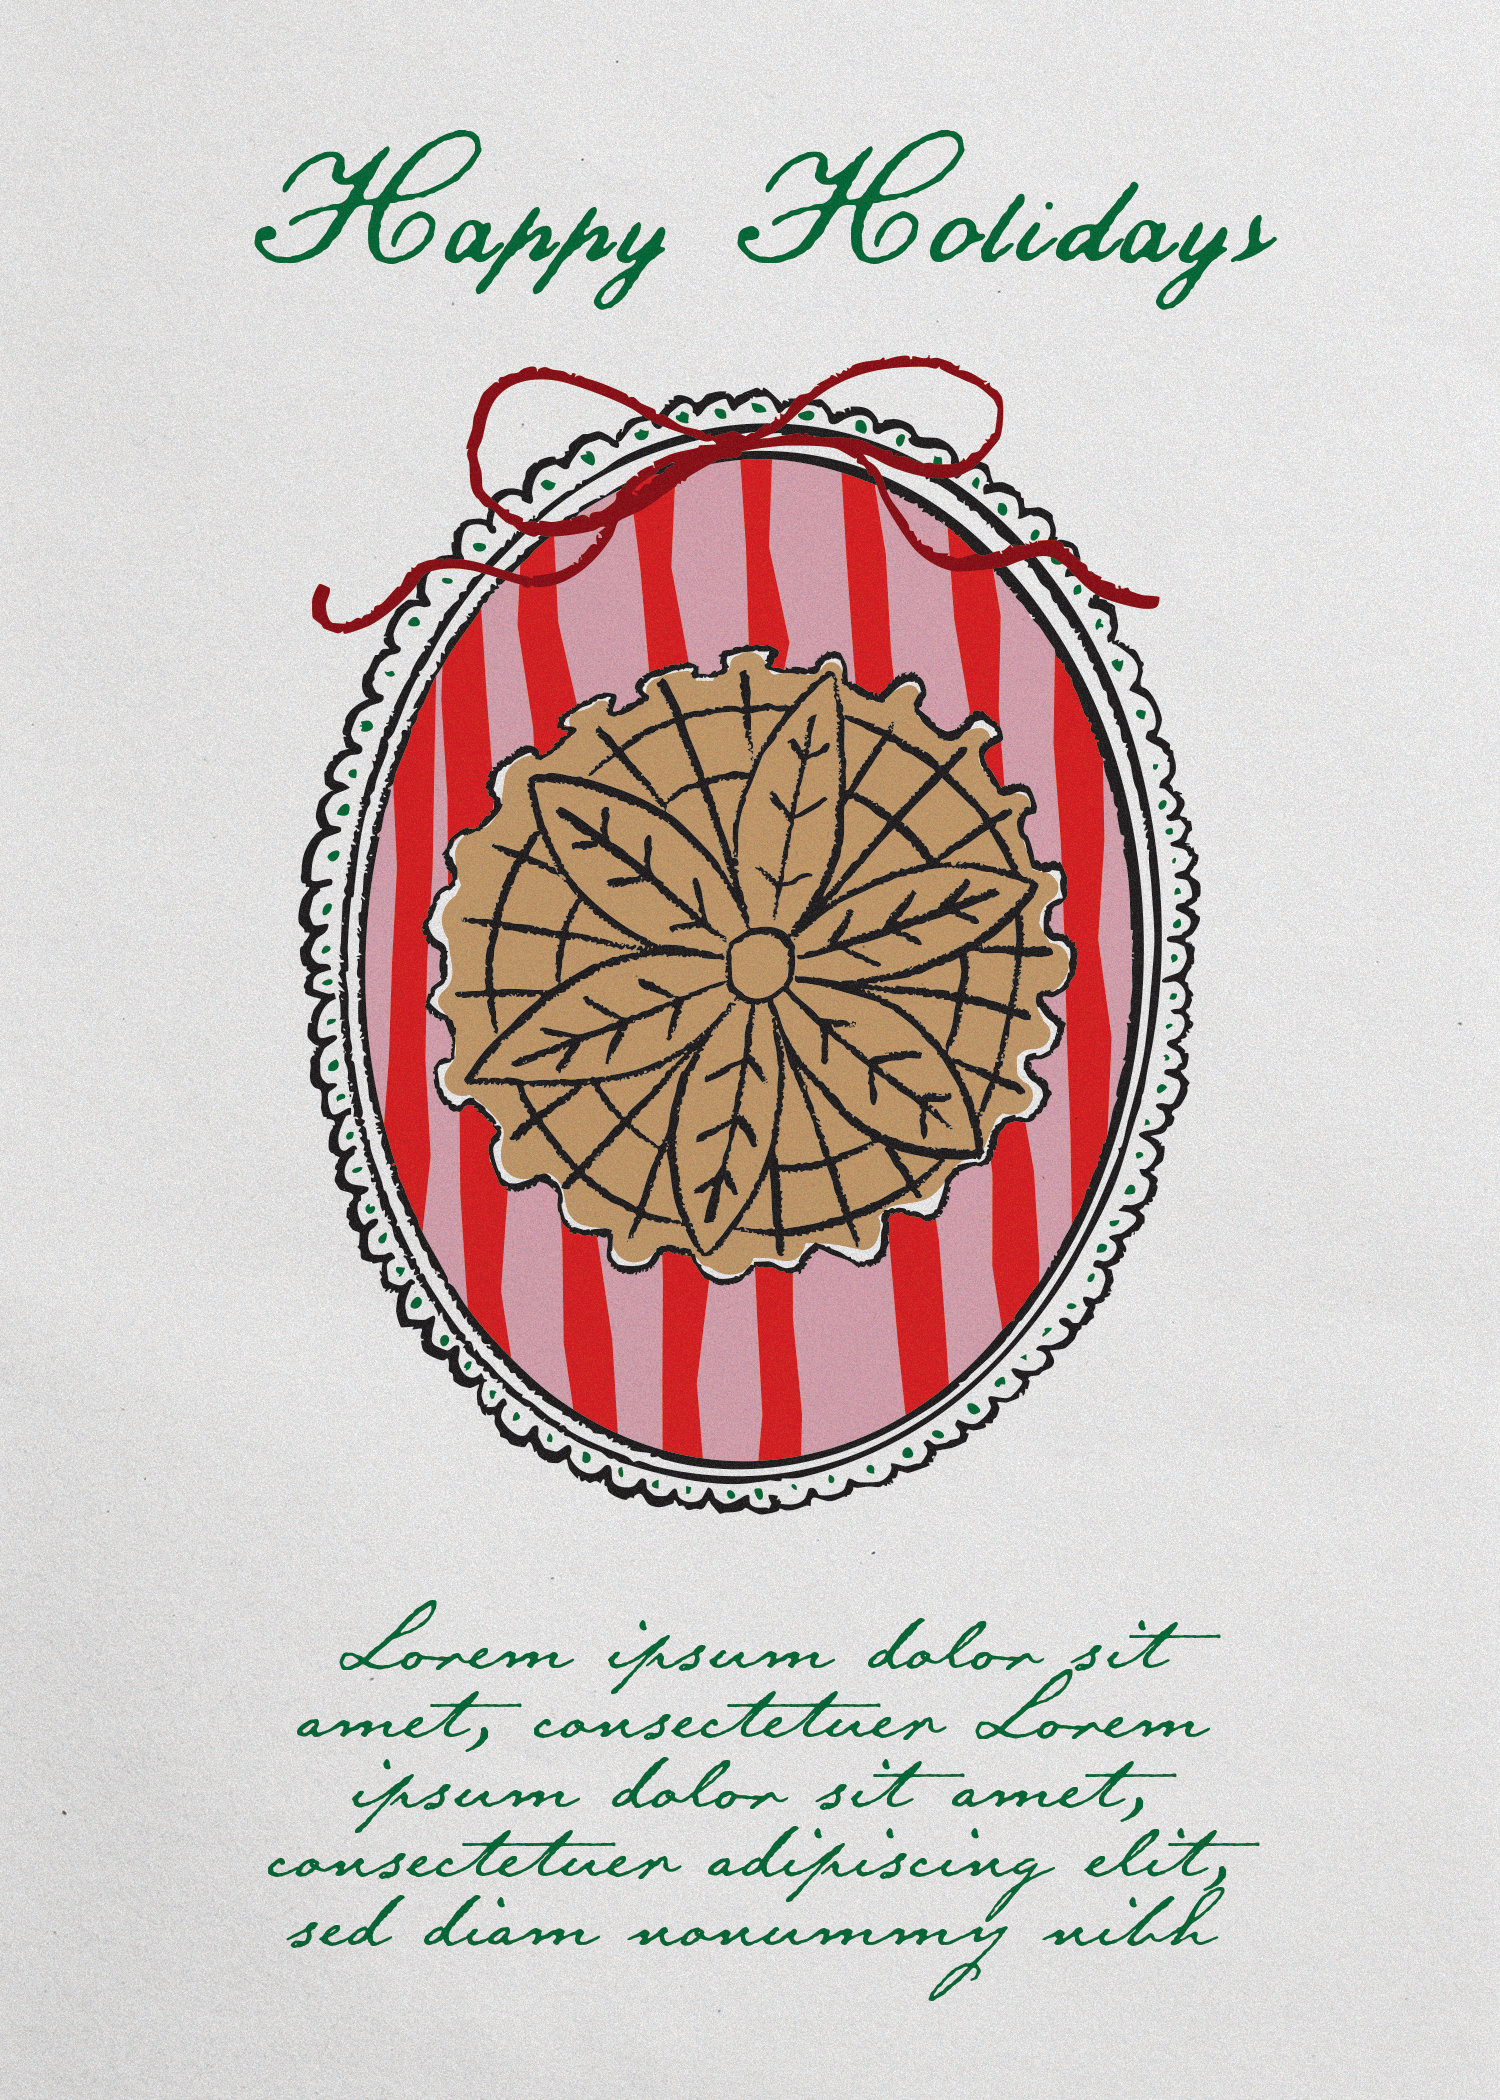 Happy Holidays
Lorem ipsum dolor sit
amet, consectetuer Lorem
ipsum dolor sit amet,
consectetuer adipiscing elit,
sed diam nonummy nibh